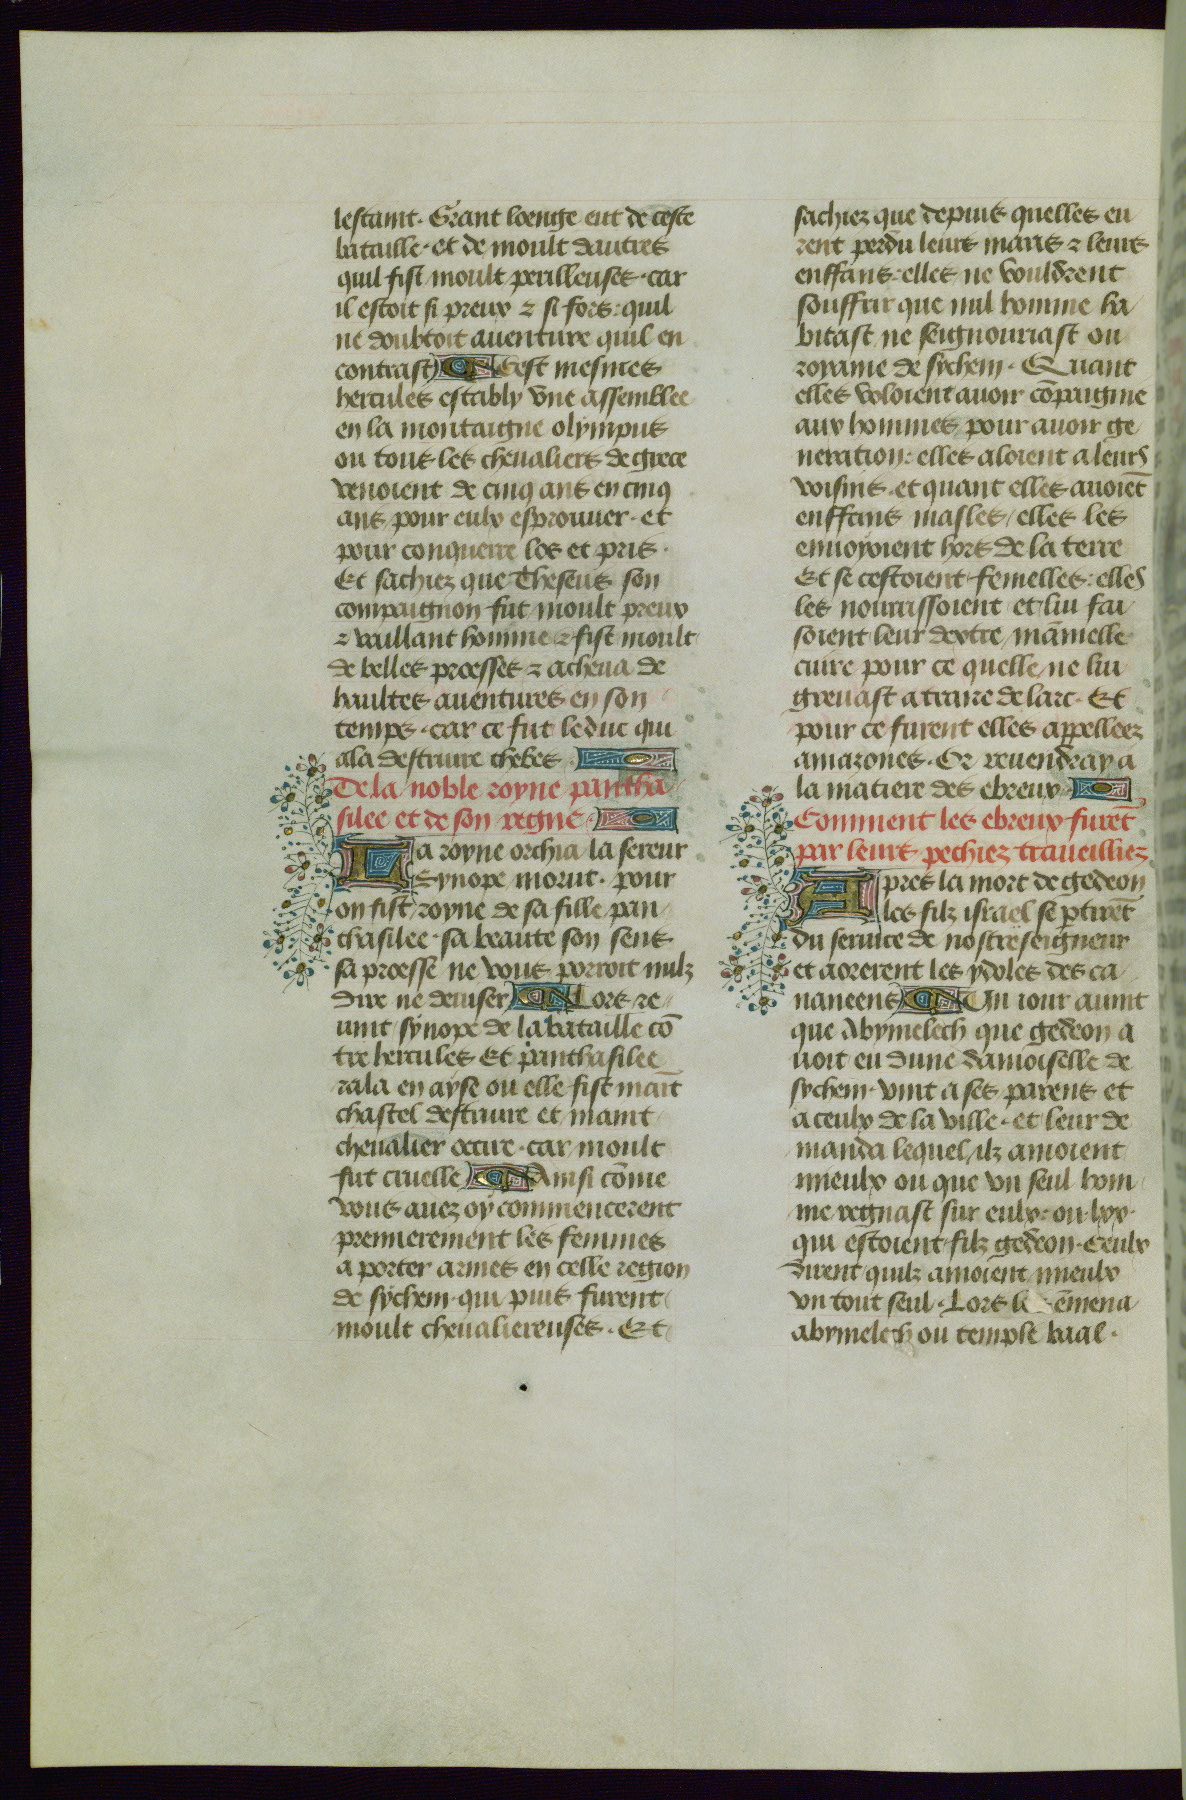 lestaint. Grant loenge eut de ceste
bataille. et de moult dautres
quil fist moult perilleuses. car
il estoit si preux ⁊ si fors: quil
ne doubtoit auenture quil en
contrast Cest mesmes
hercules establÿ vne assemblee
en la montaigne olÿmpus
ou tous les cheualiers de grece
venoient de cinq ans en cinq
ans pour eulx esprouuer. et
pour conquerre los et pris.
Et sachiez que Theseus son
compaignon fut moult preux
⁊ vaillant homme ⁊ fist moult
de belles proesses ⁊ acheua de
haultes auentures en son
temps. car ce fut le duc qui
ala destruire thebes
De la noble royne pantha
silee et de son regne
La royne orchia la sereur
Synope morut. pour
on fist royne de sa fille pan
thasilee. sa beaute son sens
sa proesse ne vous porroit nulz
dire ne deuiser Lors re
uint sÿnope de la bataille cō
tre hercules Et panthasilee
rala en aÿse ou elle fist maīt
chastel destruire et maint
cheualier occire. car moult
fut cruelle Ainsi cōme
vous auez oÿ commencerent
premierement les femmes
a porter armes en celle region
de sÿchem. qui puis furent
moult cheualiereuses. Et
sachiez que depuis quelles eu
rent perdu leurs maris ⁊ leurs
enffans: elles ne vouldrent
souffrir que nul homme ha
bitast ne seignouriast ou
royame de sÿchem. Quant
elles voloient auoir cōpaignie
aux hommes pour auoir ge
neration: elles aloient a leurs
voisins. et quant elles auoiēt
enffans masles elles les
enuoyoient hors de la terre
Et se cestoient femelles: elles
les nourrissoient et lui fai
soient leur dextre māmelle
cuire pour ce quelle ne lui
greuast a traire de larc. Et
pour ce furent elles appellees
amazones. Or reuendray a
la matiere des ebreux
Comment les ebreux furēt
par leurs pechiez traueilliez
Apres la mort de gedeon
les filz israel se ptirēt
du seruice de nostre seigneur
et aorerent les ydoles des ca
naneens Un iour auint
que Abymelech que gedeon a
uoit eu dune damoiselle de
sÿchem. vint a ses parens et
a ceulx de la ville. et leur de
manda lequel ilz amoient
mieulx ou que vn seul hom
me regnast sur eulx: ou. lxx.
qui estoient filz gedeon. Ceulx
dirent quilz amoient mieulx
vn tout seul. Lors les ēmena
abymelech ou temple baal.